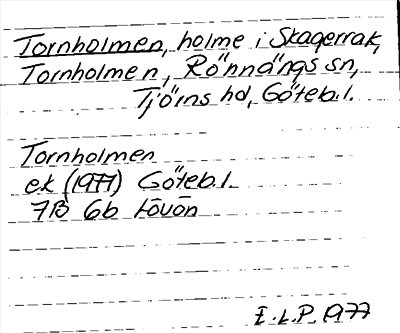 Tornholmen, holme i Skagerrak,
Tornholmen, Rönnängs sn,
Tjörns hd, Göteb. l.
Tornholmen
ek (1977) Göteb. l.
7B 6b Lövön
E.L.P. 1977